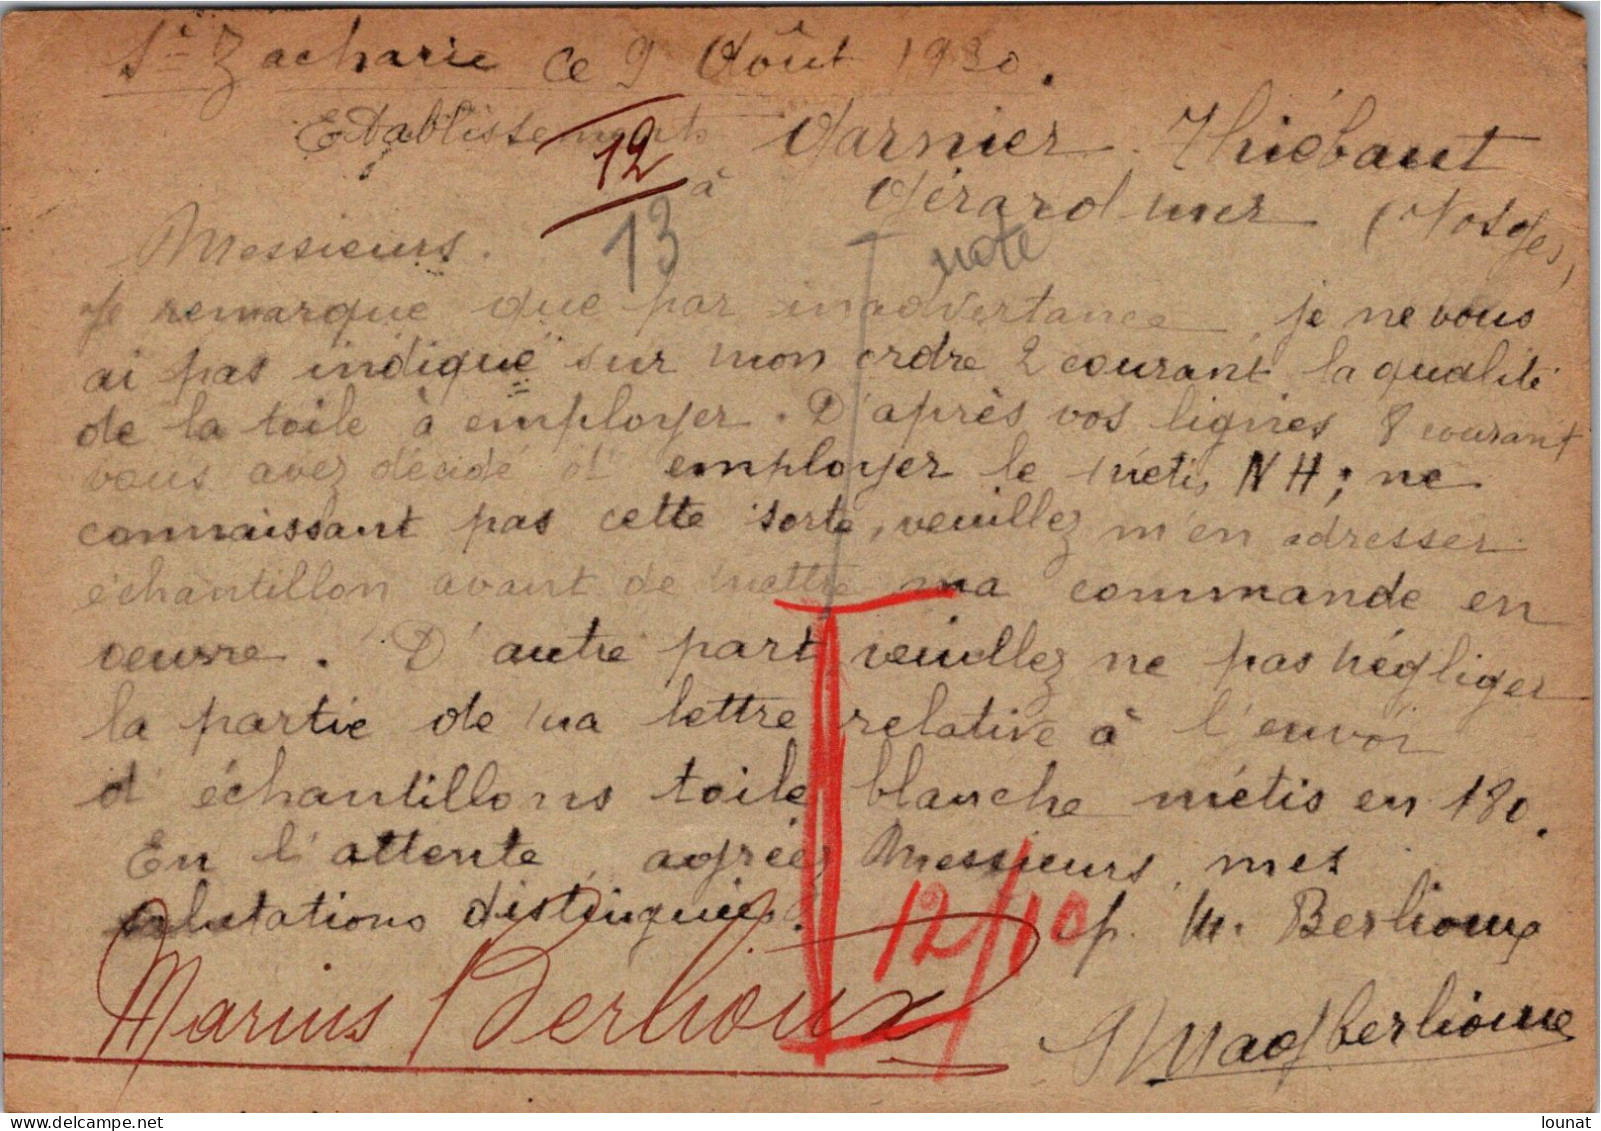 St Zacharie ce 9 Août 1930.
Etablissements Garnier Thiébaut
12
à Gérardmer (Vosges)
13
note
Messieurs.
Je remarque que par inadvertance je ne vous
ai pas indiqué sur mon ordre 2 courant la qualité
de la toile à employer. D'après vos lignes 8 courant
vous avez décidé d'employer le métis NH; ne
connaissant pas cette sorte, veuillez m'en adresser
échantillon avant de mettre ma commande en
oeuvre. D'autre part, veuillez ne pas négliger
la partie de ma lettre relative à l'envoi
d'échantillons toile blanche métis en 180.
En l'attente, agréez Messieurs, mes
salutations distinguées.
12/10
p. M. Berlioux
Marius Berlioux
lounat